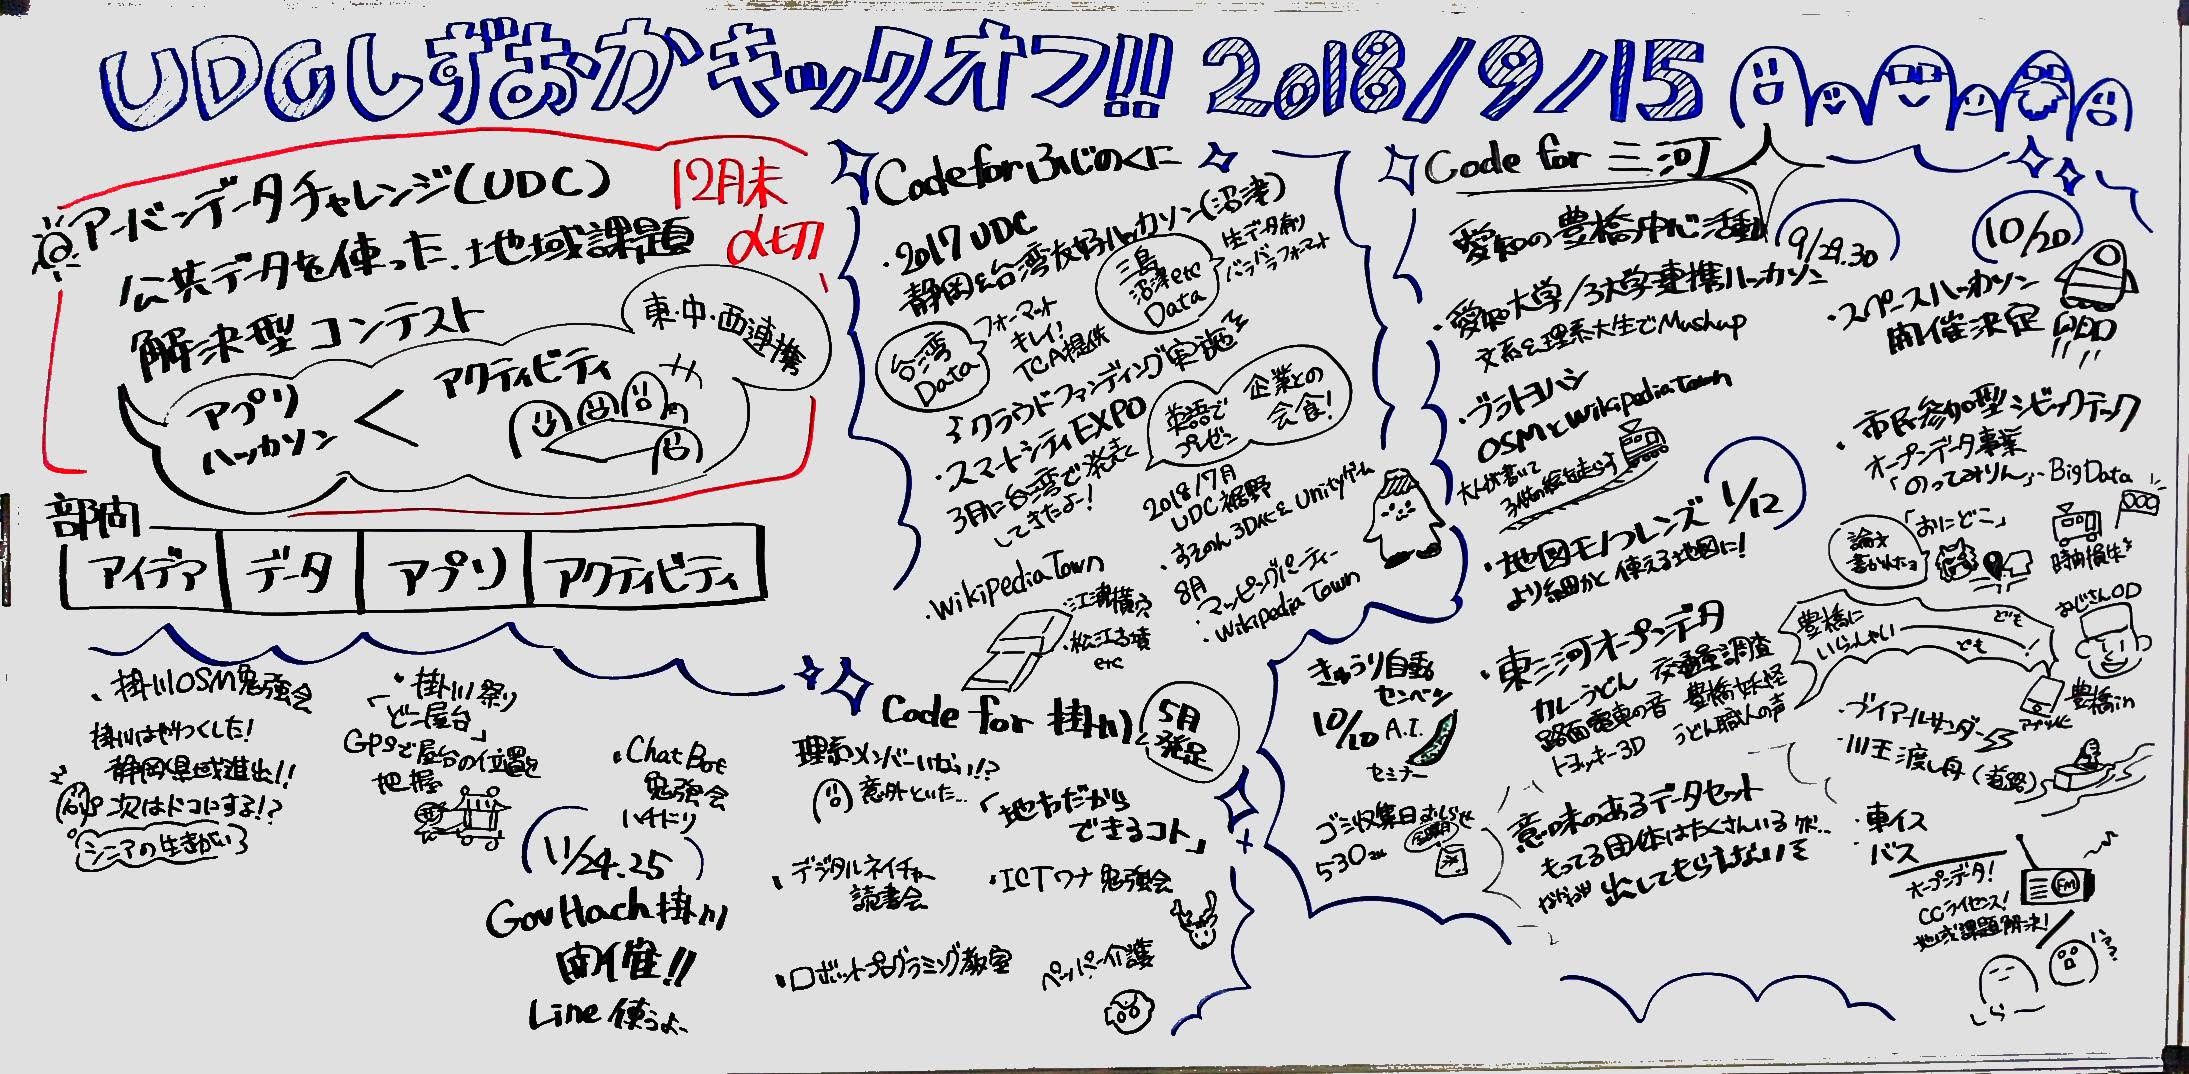 UDCしずおかキックオフ!! 2018/9/15
アーバンデータチャレンジ(UDC)
12月末
〆切
公共データを使った地域課題
解決型コンテスト
東・中・西連携
アプリ
ハッカソン
<
アクティビティ
部門
アイデア データ アプリ アクティビティ
Code for ふじのくに
・2017 UDC
静岡&台湾友好ハッカソン(沼津)
三島
沼津etc
Data
生データ有り
バラバラフォーマット
台湾
Data
フォーマット
キレイ!
TCA提供
クラウドファンディング実施
・スマートシティEXPO
3月に台湾で発表
してきたよ!
英語で
プレゼン
企業との
会食!
2018/7月
UDC裾野
・すそのん3D化&Unityゲーム
8月
マッピングパーティー
・Wikipedia Town
・Wikipedia Town
・江津横穴
・松江古墳
etc
Code for 三河
愛知の豊橋中心活動
9/29.30
・愛知大学/3大学連携ハッカソン
文系&理系大生でMashup
・ブラトヨハシ
OSMとWikipedia Town
・地図モノコレンズ 1/12
より細かく使える地図に!
・東三河オープンデータ
カレーうどん 交通量調査
路面電車の音 豊橋妖怪
トヨッキー3D うどん職人の声
意味のあるデータセット
もってる団体はたくさんいるケド..
なかなか出してもらえない
10/20
・スペースハッカソン
開催決定
・市民参加型シビックテック
オープンデータ事業
「のってみりん」・BigData
「おにどこ」
論文
書かれたョ
時間損失
おじさんOD
豊橋に
いらっしゃい
ども
ども!
豊橋in
・ブイアールサンダー
・川王渡し舟(道路)
・車イス
バス
オープンデータ!
CCライセンス!
地域課題解決!
FM
しらー
きゅうり自動
センベツ
10/10 A.I.
セミナー
ゴミ収集日おしらせ
530
Code for 掛川
5月
発足
理系メンバーいない!?
意外といた…
「地方だから
できるコト」
・デジタルネイチャー
読書会
・ICTワナ勉強会
・ロボットプログラミング教室
ペッパー介護
・掛川OSM勉強会
掛川はやりつくした!
静岡県域進出!!
次はドコにする!?
シニアの生きがい
・掛川祭り
「どこ屋台」
GPSで屋台の位置を
把握
・Chat Bot
勉強会
ハチドリ
11/24.25
GovHack掛川
開催!!
Line使うよ